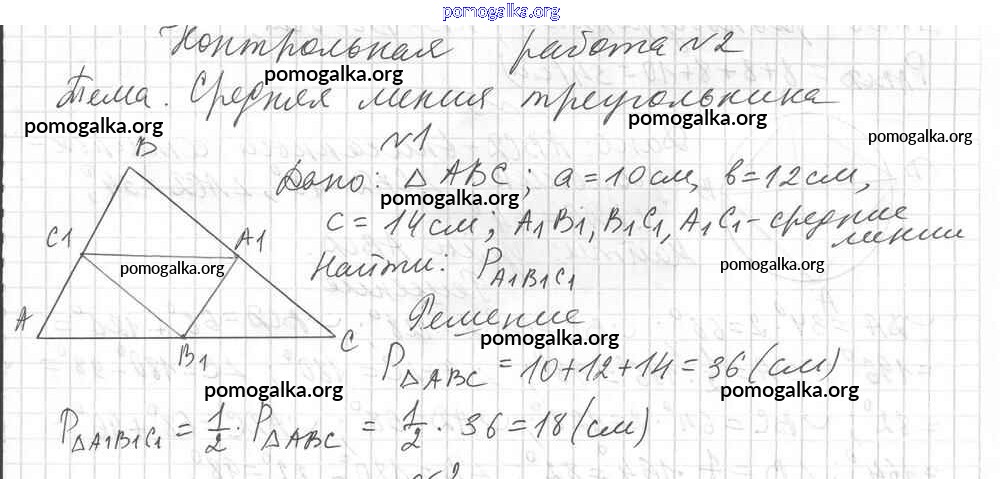 pomogalka.org
Контрольная работа №2
pomogalka.org
Тема. Средняя линия треугольника
pomogalka.org pomogalka.org
№1
pomogalka.org
B
Дано: △ABC; a=10см, b=12см,
pomogalka.org
c=14см; A1B1, B1C1, A1C1 - средние линии
C1 A1
pomogalka.org pomogalka.org
Найти: P A1B1C1
Решение
A B1 C
pomogalka.org
P△ABC = 10+12+14=36(см)
pomogalka.org pomogalka.org
P△A1B1C1 = 1/2 · P△ABC = 1/2 · 36=18(см)
№2